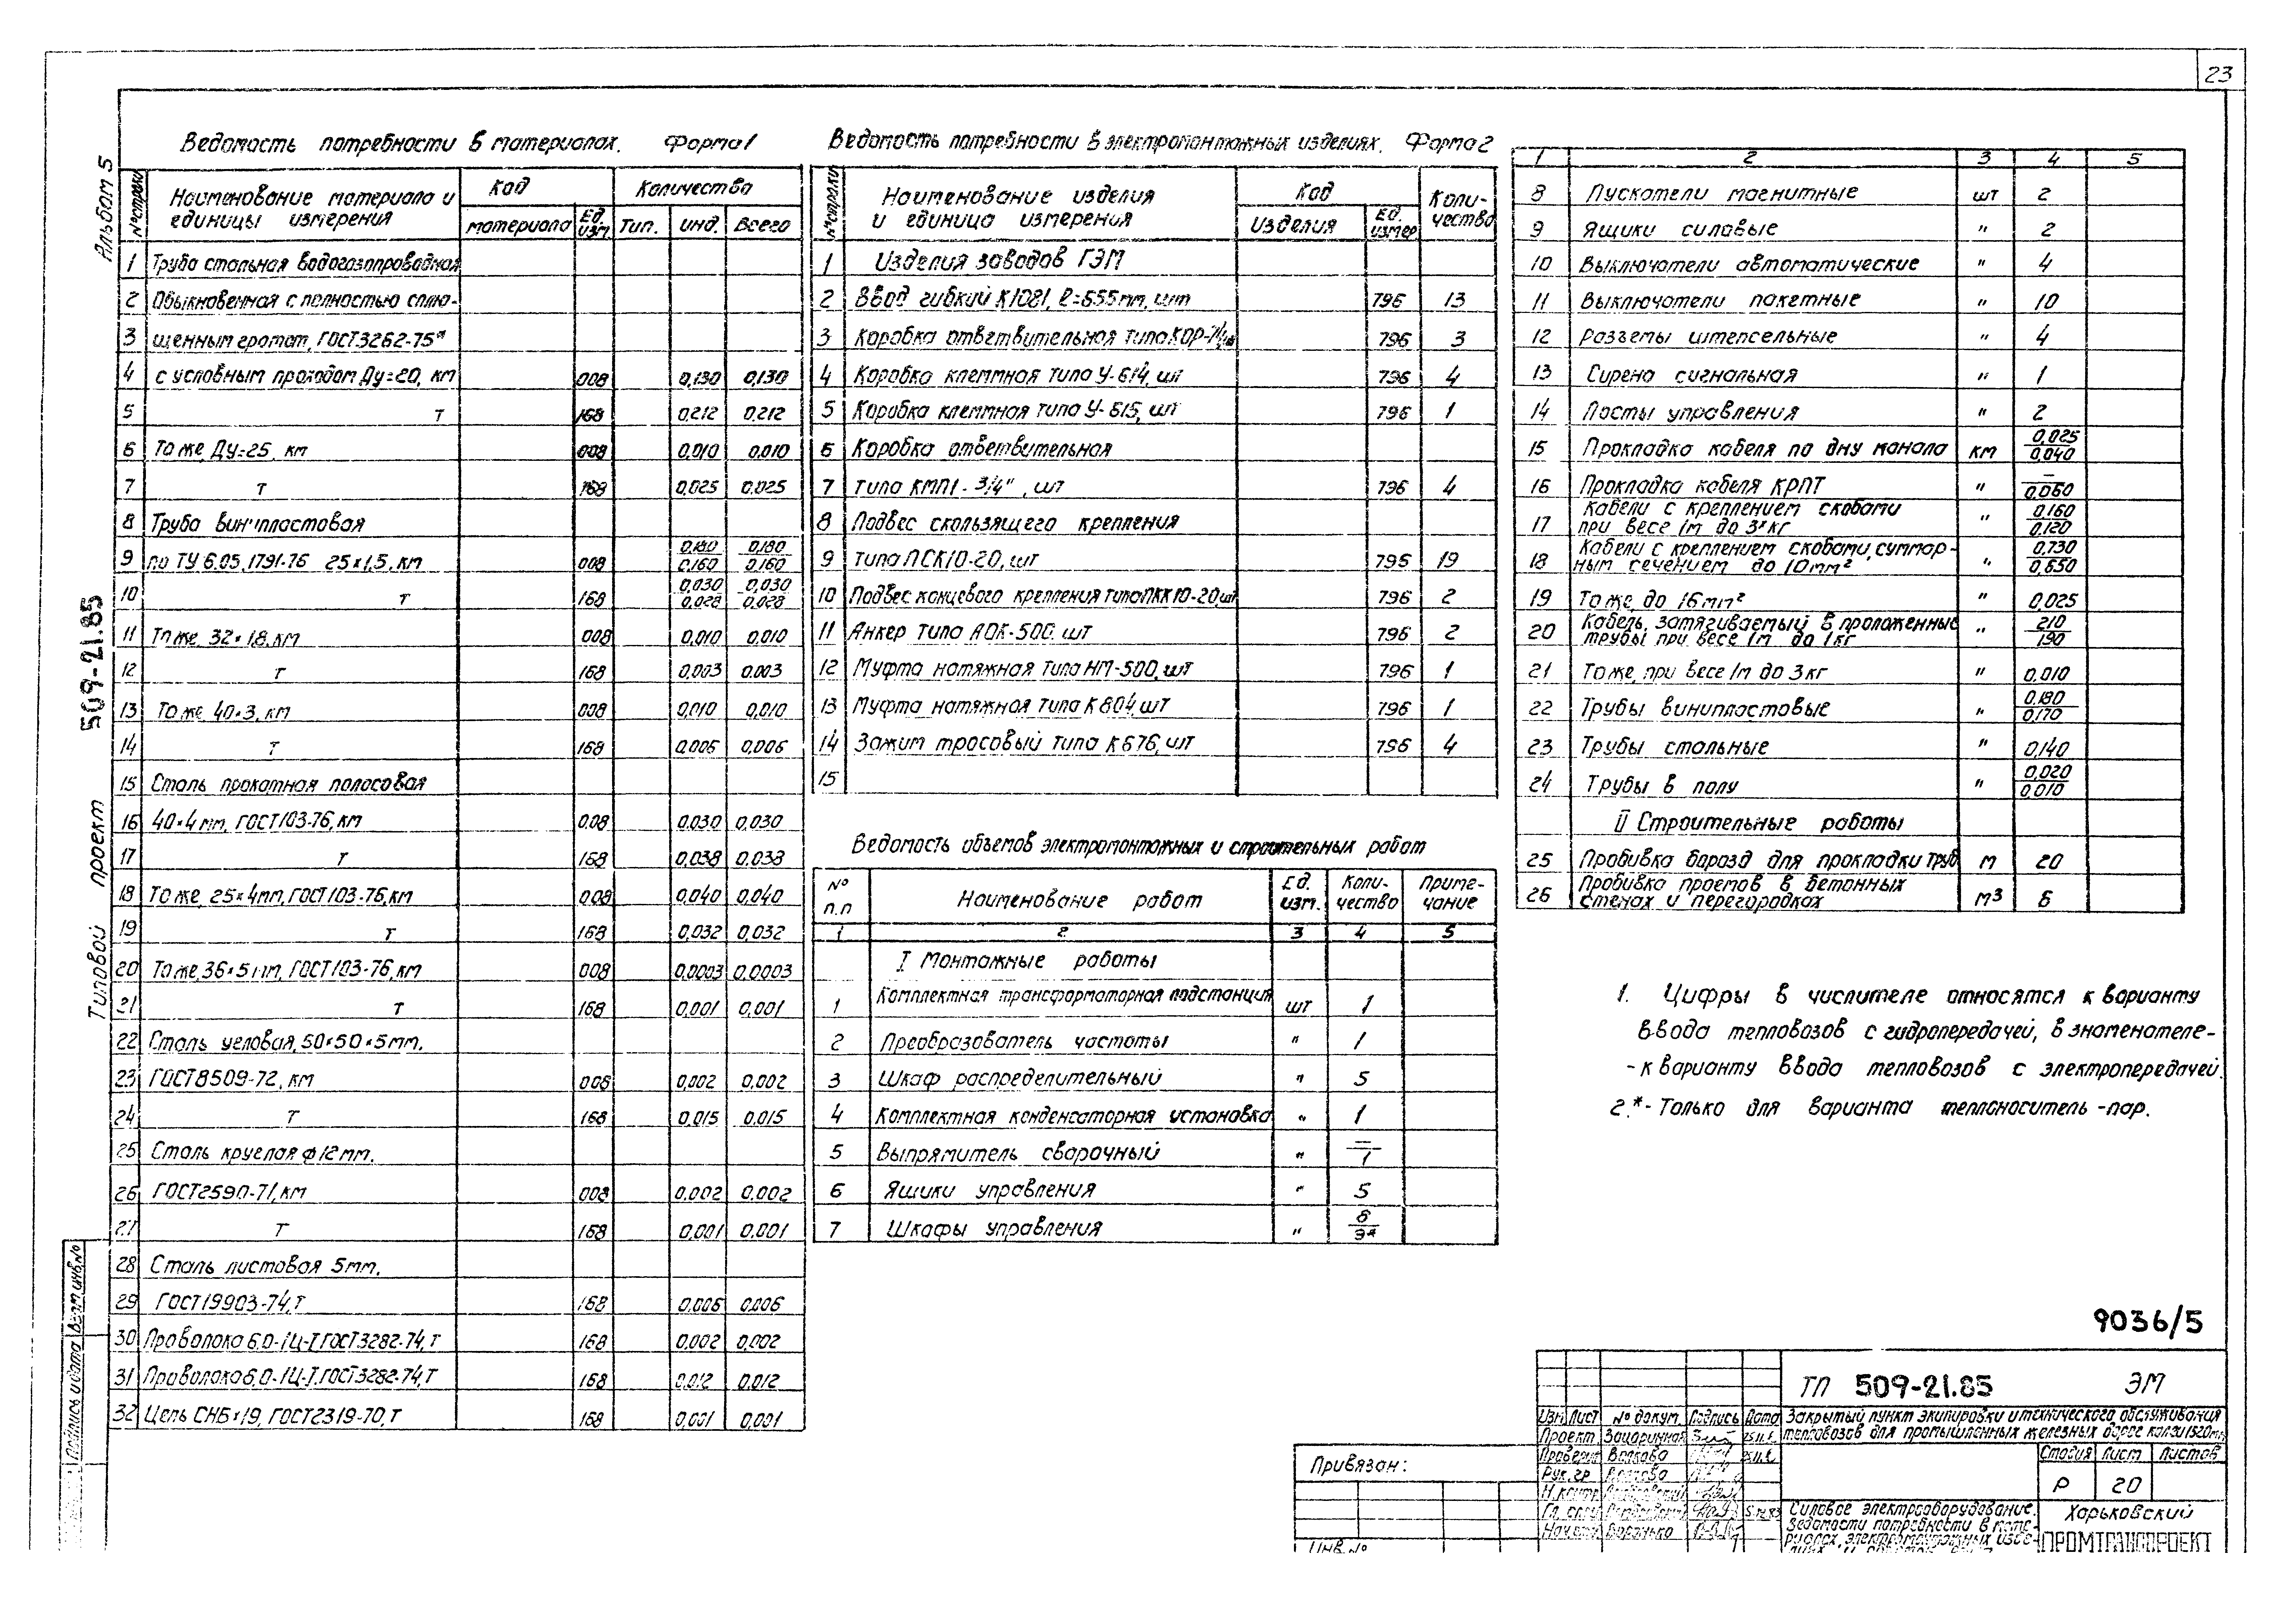 23
Альбом 5
Типовой проект 509-21.85
Ведомость потребности в материалах. Форма 1
№ строки Наименование материала и единицы измерения Код материала Ед. изм. Количество Тип. инд. Всего
1 Труба стальная водогазопроводная
2 Обыкновенная с полностью сплю-
3 щенным гротом, ГОСТ 3262-75*
4 с условным проходом Ду=20, км 008 0,130 0,130
5 т 168 0,212 0,212
6 То же, Ду=25, км 008 0,010 0,010
7 т 168 0,025 0,025
8 Труба винипластовая
9 по ТУ 6.05.1791-76 25×1,5, км 008 0,180/0,160 0,180/0,160
10 т 168 0,030/0,028 0,030/0,028
11 То же, 32×1,8, км 008 0,010 0,010
12 т 168 0,003 0,003
13 То же 40×3, км 008 0,010 0,010
14 т 168 0,006 0,006
15 Сталь прокатная полосовая
16 40×4 мм, ГОСТ 103-76, км 008 0,030 0,030
17 т 168 0,038 0,038
18 То же, 25×4 мм, ГОСТ 103-76, км 008 0,040 0,040
19 т 168 0,032 0,032
20 То же, 36×5 мм, ГОСТ 103-76, км 008 0,0003 0,0003
21 т 168 0,001 0,001
22 Сталь угловая, 50×50×5 мм.
23 ГОСТ 8509-72, км 008 0,002 0,002
24 т 168 0,015 0,015
25 Сталь круглая ф 12 мм.
26 ГОСТ 2590-71, км 008 0,002 0,002
27 т 168 0,001 0,001
28 Сталь листовая 5 мм.
29 ГОСТ 19903-74, т 168 0,006 0,006
30 Проволока 6.0-1Ц-I ГОСТ 3282-74, т 168 0,002 0,002
31 Проволока 6.0-1Ц-I ГОСТ 3282-74, т 168 0,012 0,012
32 Цепь СН6×19, ГОСТ 2319-70, т 168 0,001 0,001
Ведомость потребности в электромонтажных изделиях. Форма 2
№ строки Наименование изделия и единица измерения Код Изделия Ед. измер Коли-чество
1 Изделия заводов ГЭМ
2 Ввод гибкий К1081, ℓ=655 мм, шт 796 13
3 Коробка ответвительная типа КОР- 796 3
4 Коробка клеммная типа У-614, шт 796 4
5 Коробка клеммная типа У-615, шт 796 1
6 Коробка ответвительная
7 типа КМП1-3/4", шт 796 4
8 Подвес скользящего крепления
9 типа ПСК10-20, шт 796 19
10 Подвес концевого крепления типа ПКК10-20, шт 796 2
11 Анкер типа АОК-500, шт 796 2
12 Муфта натяжная типа НМ-500, шт 796 1
13 Муфта натяжная типа К804, шт 796 1
14 Зажим тросовый типа К676, шт 796 4
15
Ведомость объемов электромонтажных и строительных работ
№ п.п Наименование работ Ед. изм. Коли-чество Приме-чание
1 2 3 4 5
I Монтажные работы
1 Комплектная трансформаторная подстанция шт 1
2 Преобразователь частоты " 1
3 Шкаф распределительный " 5
4 Комплектная конденсаторная установка " 1
5 Выпрямитель сварочный " –/1
6 Ящики управления " 5
7 Шкафы управления " 8/9*
1 2 3 4 5
8 Пускатели магнитные шт 2
9 Ящики силовые " 2
10 Выключатели автоматические " 4
11 Выключатели пакетные " 10
12 Разъемы штепсельные " 4
13 Сирена сигнальная " 1
14 Посты управления " 2
15 Прокладка кабеля по дну канала км 0,025/0,040
16 Прокладка кабеля КРПТ " –/0,060
17 Кабели с креплением скобами при весе 1м до 3 кг " 0,160/0,120
18 Кабели с креплением скобами, суммар-ным сечением до 10 мм² " 0,730/0,650
19 То же, до 16 мм² " 0,025
20 Кабель, затягиваемый в проложенные трубы при весе 1м до 1 кг " 210/190
21 То же, при весе 1м до 3 кг " 0,010
22 Трубы винипластовые " 0,180/0,170
23 Трубы стальные " 0,140
24 Трубы в полу " 0,020/0,010
II Строительные работы
25 Пробивка борозд для прокладки труб м 20
26 Пробивка проемов в бетонных стенах и перегородках м3 6
1. Цифры в числителе относятся к варианту
ввода тепловозов с гидропередачей, в знаменателе-
-к варианту ввода тепловозов с электропередачей.
2.*-Только для варианта теплоноситель-пар.
9036/5
ТП 509-21.85 ЭМ
Изм Лист № докум. Подпись Дата
Закрытый пункт экипировки и технического обслуживания
тепловозов для промышленных железных дорог колеи 1520мм
Проект Зацаринная
Проверил Волкова
Рук. гр Волкова
Н.контр
Гл. спец
Нач.отд
Стадия Лист Листов
Р 20
Силовое электрооборудование.
Ведомости потребности в мате-
риалах, электромонтажных изде-
Харьковский
ПРОМТРАНСПРОЕКТ
Привязан:
Инв.№
Подпись и дата Взам инв.№